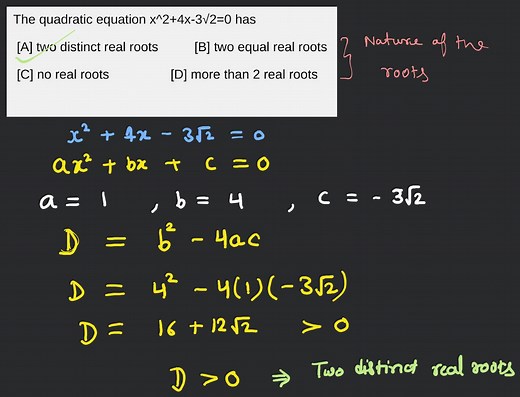 The quadratic equation x^2+4x-3√2=0 has
[A] two distinct real roots [B] two equal real roots
[C] no real roots [D] more than 2 real roots
Nature of the
roots
x² + 4x - 3√2 = 0
ax² + bx + c = 0
a = 1 , b = 4 , c = - 3√2
D = b² - 4ac
D = 4² - 4(1)(-3√2)
D = 16 + 12√2 > 0
D > 0 ⇒ Two distinct real roots